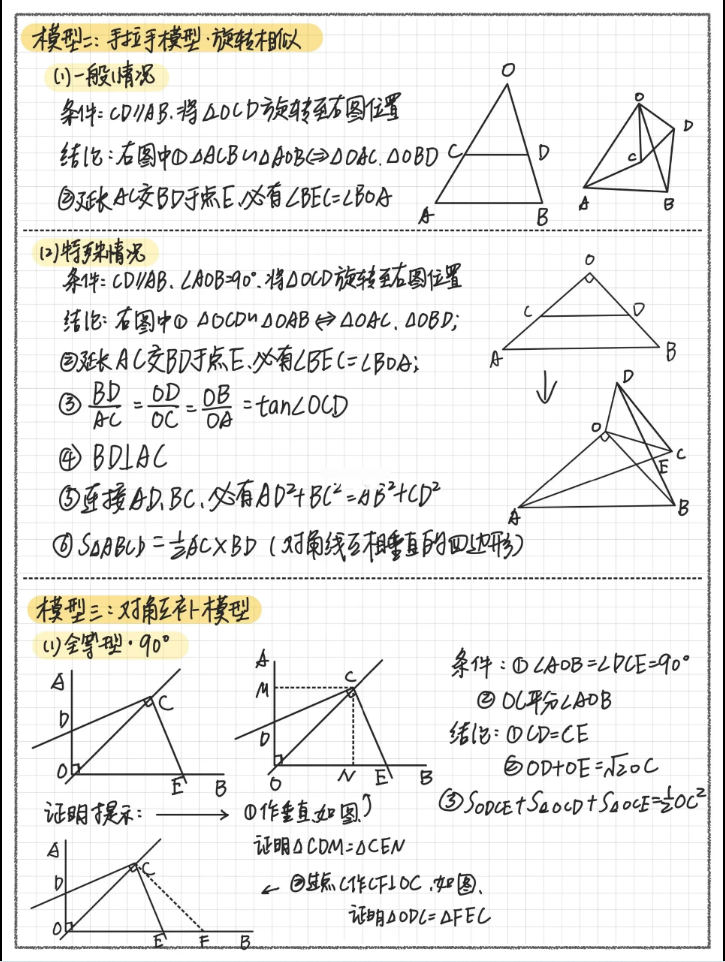 模型二：手拉手模型·旋转相似
(1)一般情况
条件：CD//AB、将△OCD旋转至右图位置
结论：右图中①△ACB∽△AOB⇔△OAC、△OBD
②延长AC交BD于点E、必有∠BEC=∠BOA
O
C
D
A
B
O
D
C
A
B
(2)特殊情况
条件：CD//AB、∠AOB=90°、将△OCD旋转至右图位置
结论：右图中① △OCD∽△OAB⇔△OAC、△OBD;
②延长AC交BD于点E、必有∠BEC=∠BOA;
③ BD/AC = OD/OC = OB/OA = tan∠OCD
④ BD⊥AC
⑤连接AD、BC、必有AD²+BC²=AB²+CD²
⑥S△ABCD=½AC×BD（对角线互相垂直的四边形）
O
C
D
A
B
D
O
C
E
A
B
模型三：对角互补模型
(1)全等型·90°
A
D
C
O
E
B
A
M
C
D
O
N
E
B
条件：①∠AOB=∠DCE=90°
②OC平分∠AOB
结论：①CD=CE
②OD+OE=√2OC
③SODCE+S△OCD+S△OCE=½OC²
证明提示：
①作垂直、如图
证明△CDM=△CEN
②过点C作CF⊥OC、如图、
证明△ODC=△FEC
A
D
C
O
E
F
B